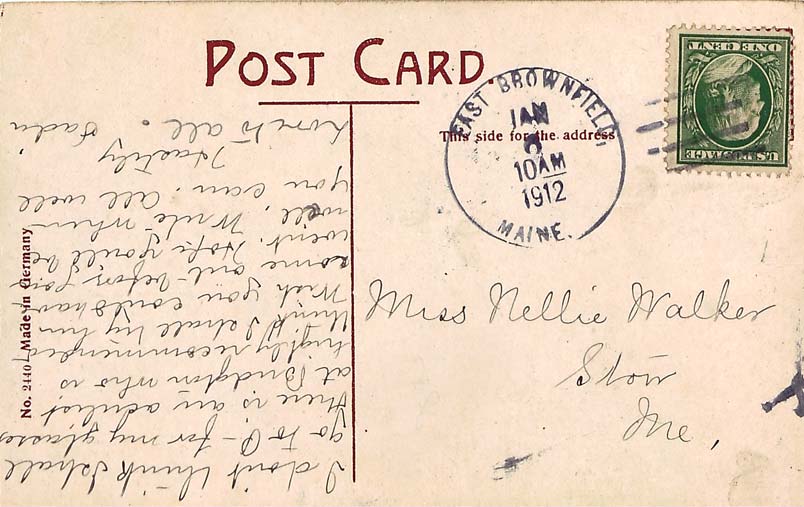 POST CARD.
This side for the address
EAST BROWNFIELD,
JAN
10 AM
1912
MAINE.
U.S. POSTAGE
ONE CENT
No. 2440 Made in Germany
Miss Nellie Walker
Stow
Me,
I don't think I shall
go to P- for my glasses
there is an oculist
at Bridgton who is
highly recommended
think I shall try him
Wish you could have
come out before you
went. Hope you'll be
well. Write when
you can. All well
Hastily
Love to all.